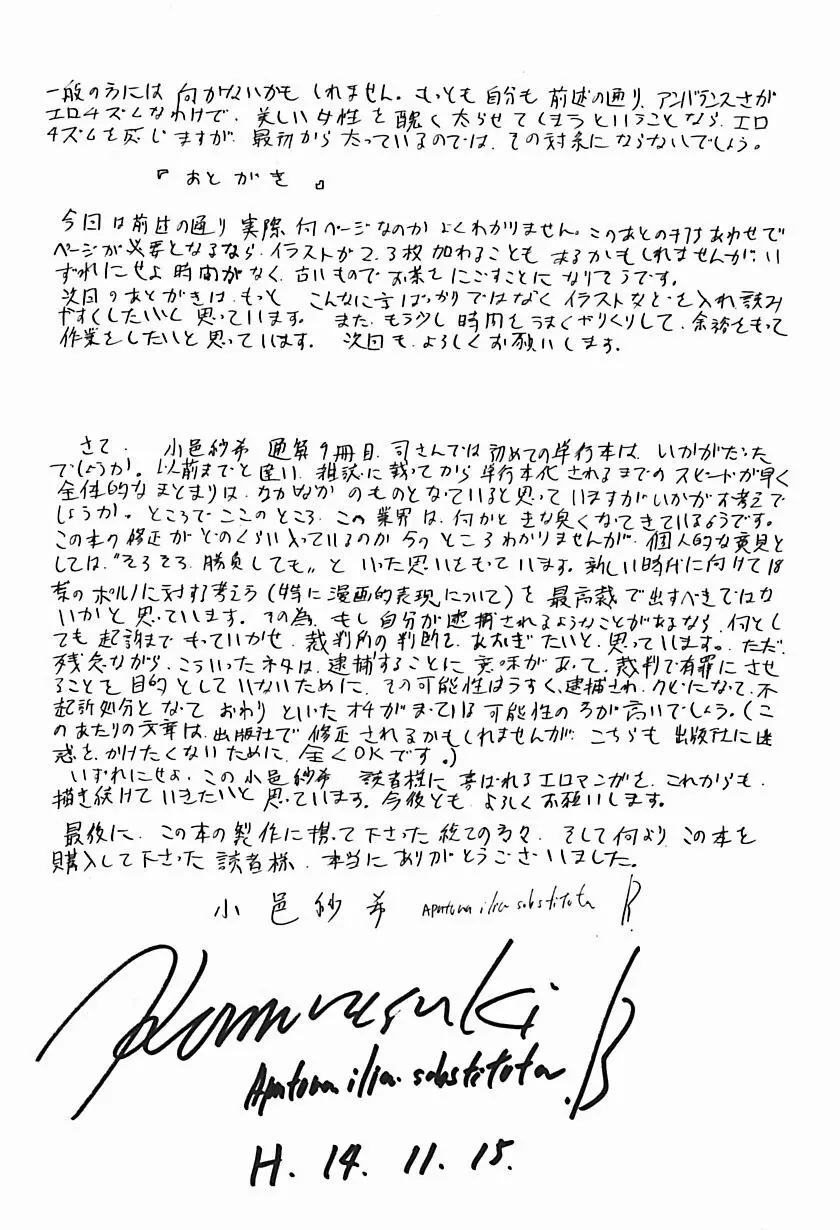 一般の方には何がないかもしれません。もっとも自分も前述の通り、アンバランスさが
エロチズムなわけで、美しい女性を醜く太らせてしまうということなら、エロ
チズムを感じますが、最初から太っているのでは、その対象にならないでしょう。
『おとがき』
今回は前述の通り実際何ページなのかよくわかりません。このあとの打ちあわせで
ページが必要となるなら、イラストが2、3枚加わることもあるかもしれませんが、い
ずれにせよ時間がなく、古いものでお茶をにごすことになりそうです。
次回のあとがきは、もっと こんなに字ばっかりではなくイラストなどを入れ読み
やすくしたいと思っています。また、もう少し時間をうまくやりくりして、余裕をもって
作業をしたいと思っています。次回も、よろしくお願いします。
さて、小邑紗希 通算9冊目、司さんでは初めての単行本は、いかがだった
でしょうか。以前までと違い、雑誌に載ってから単行本化されるまでのスピードが早く
全体的なまとまりは、なかなかのものとなっていると思っていますがいかがお考えで
しょうか。ところでここのところ、この業界は、何かときな臭くなってきているようです。
この本の修正がどのくらい入っているのか今のところわかりませんが、個人的な意見と
しては、"そろそろ、勝負しても"といった思いをもっています。新しい時代に向けて18
禁のポルノに対する考え方(特に漫画的表現について)を最高裁で出すべきではな
いかと思っています。その為、もし自分が逮捕されるようなことがあるなら、何とし
ても起訴までもっていかせ、裁判所の判断を、あおぎたいと、思っています。ただ、
残念ながら、こういったネタは、逮捕することに意味があって、裁判で有罪にさせ
ることを目的としていないために、その可能性はうすく、逮捕され、クビになって、不
起訴処分となっておわりといったオチがまっている可能性の方が高いでしょう。(こ
のあたりの文章は、出版社で修正されるかもしれませんが、こちらも出版社に迷
惑をかけたくないために、全くOKです。)
いずれにせよ、この小邑紗希 読者様に喜ばれるエロマンガを、これからも、
描き続けていきたいと思っています。今後とも、よろしくお願いします。
最後に、この本の製作に携って下さった総ての方々、そして何より、この本を
購入して下さった読者様、本当にありがとうございました。
小邑紗希 Apatura ilia substituta B
Komurasaki
Apatura ilia substituta .B
H. 14. 11. 15.